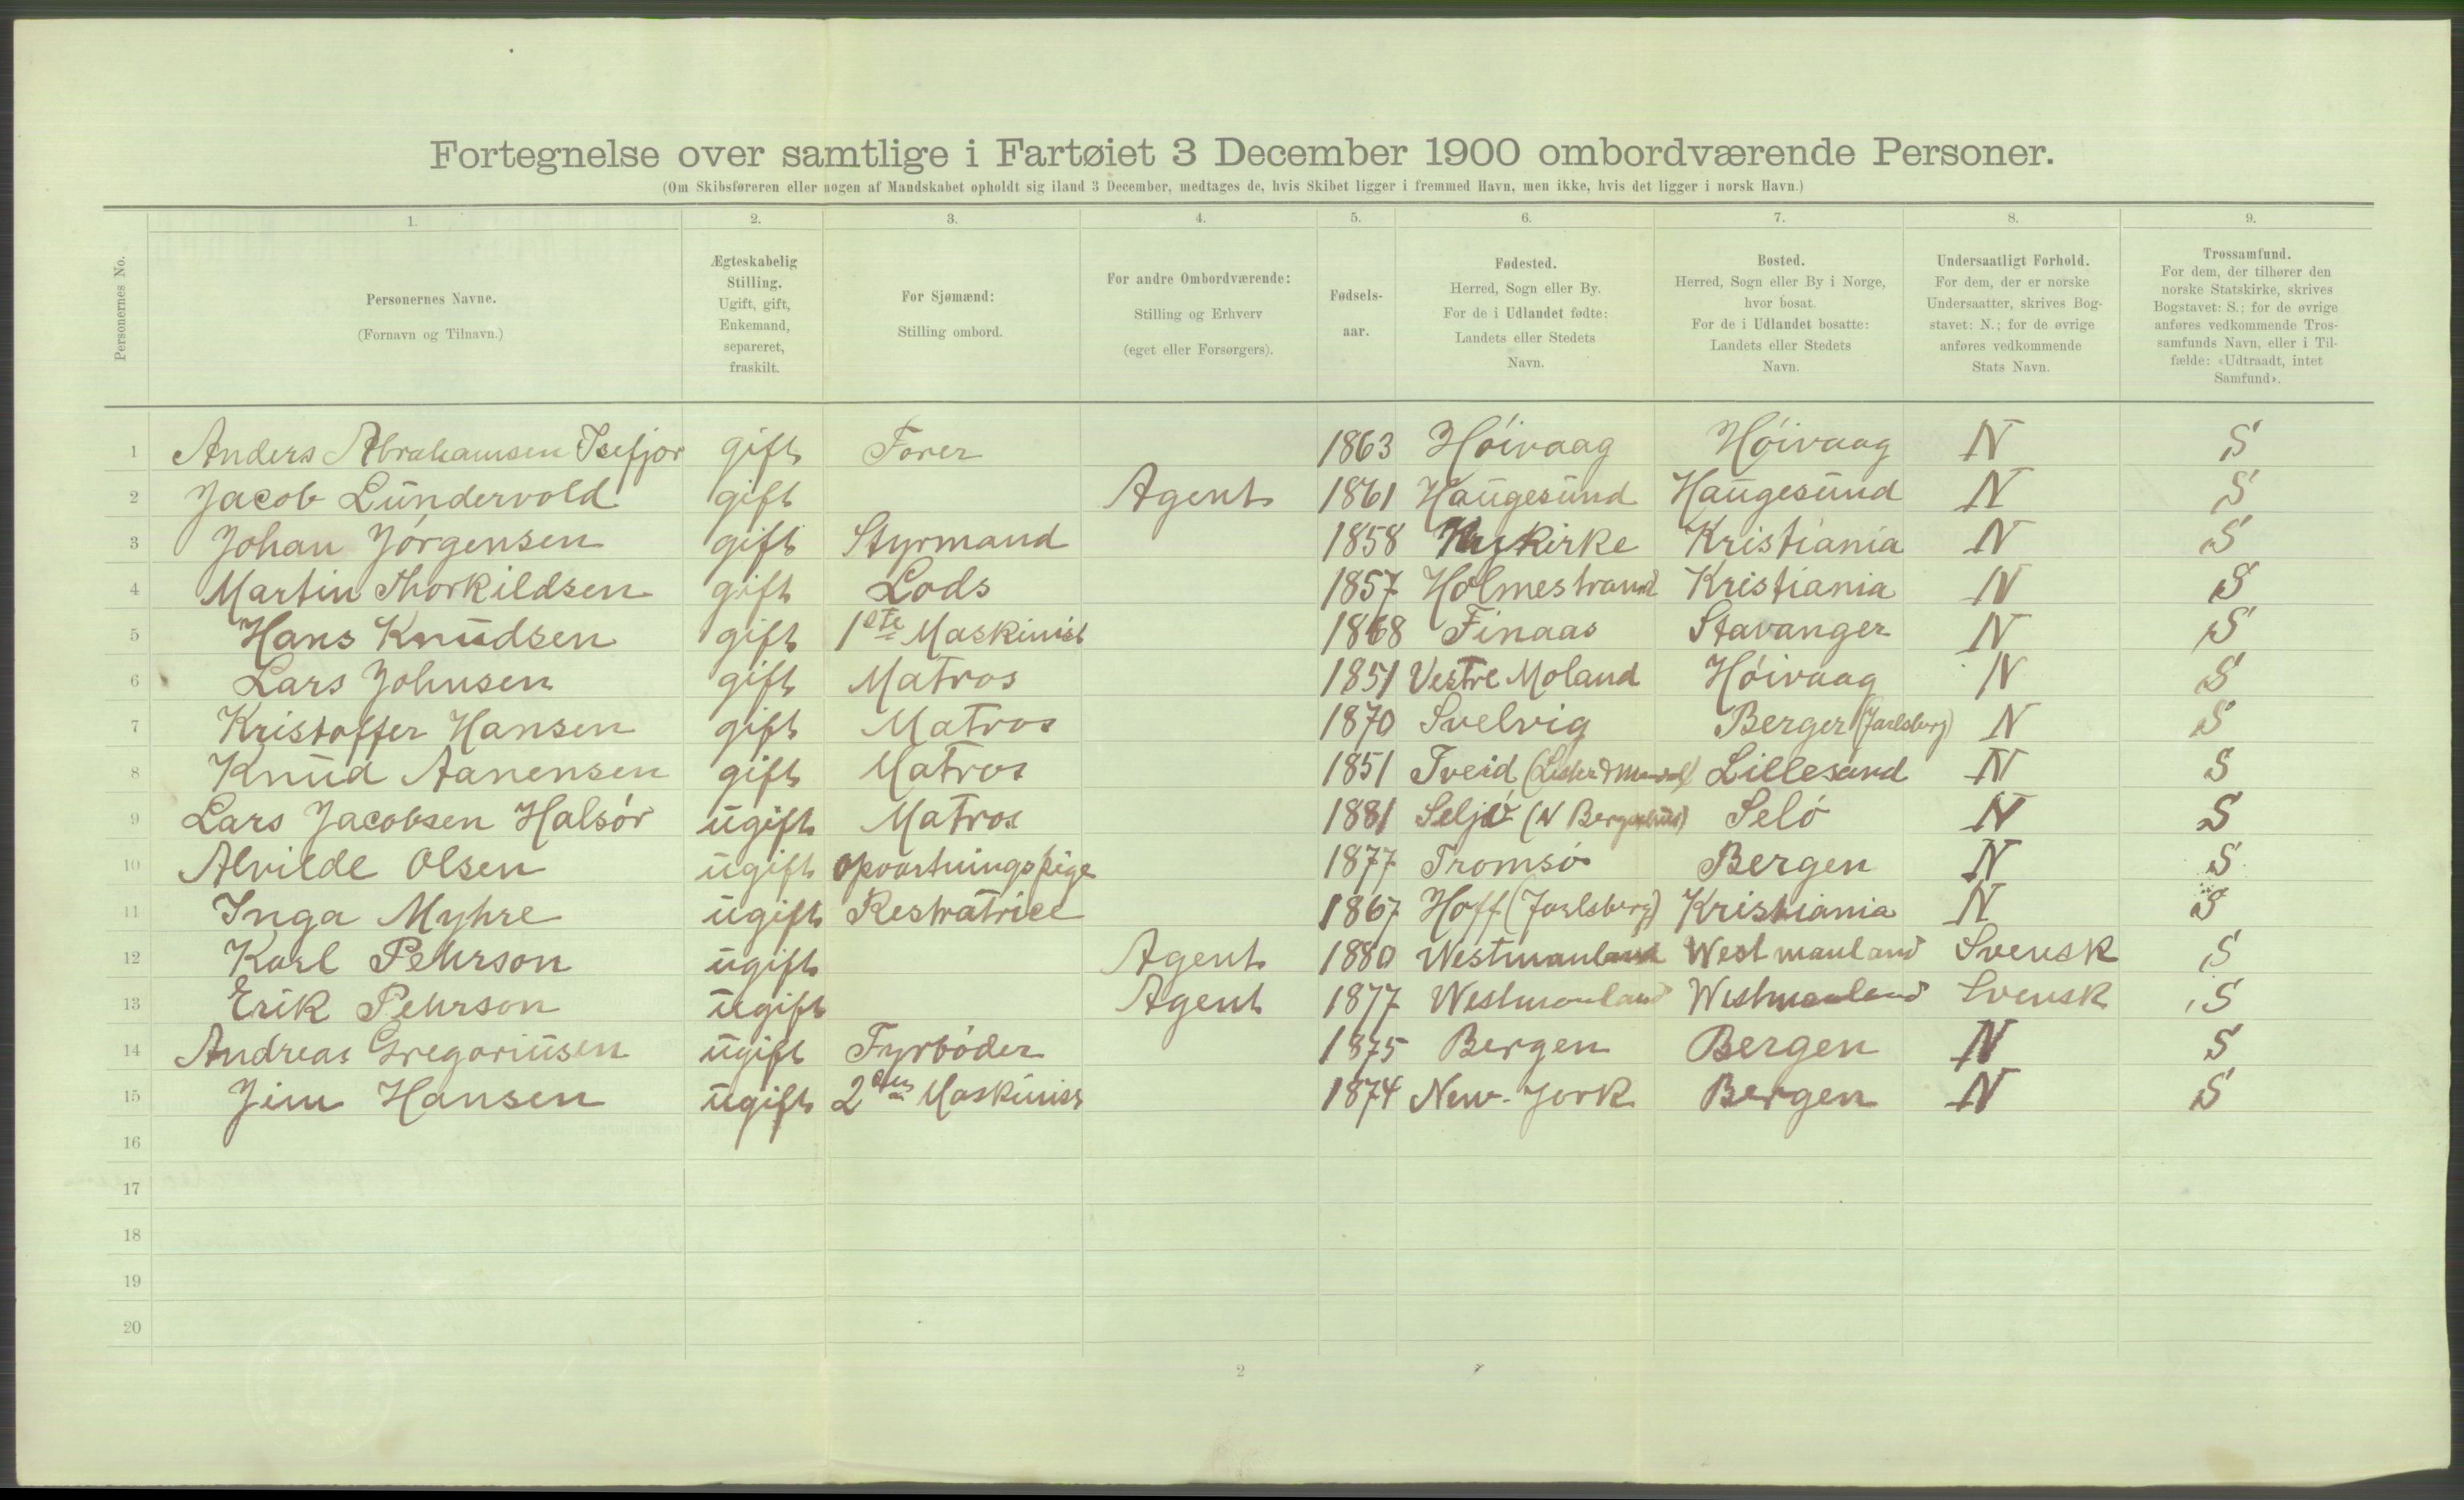 Fortegnelse over samtlige i Fartøiet 3 December 1900 ombordværende Personer.
(Om Skibsføreren eller nogen af Mandskabet opholdt sig iland 3 December, medtages de, hvis Skibet ligger i fremmed Havn, men ikke, hvis det ligger i norsk Havn.)
Personernes No.
1. 2. 3. 4. 5. 6. 7. 8. 9.
Personernes Navne.
(Fornavn og Tilnavn.)
Ægteskabelig
Stilling.
Ugift, gift,
Enkemand,
separeret,
fraskilt.
For Sjømænd:
Stilling ombord.
For andre Ombordværende:
Stilling og Erhverv
(eget eller Forsørgers).
Fødsels-
aar.
Fødested.
Herred, Sogn eller By.
For de i Udlandet fødte:
Landets eller Stedets
Navn.
Bosted.
Herred, Sogn eller By i Norge,
hvor bosat.
For de i Udlandet bosatte:
Landets eller Stedets
Navn.
Undersaatligt Forhold.
For dem, der er norske
Undersaatter, skrives Bog-
stavet: N.; for de øvrige
anføres vedkommende
Stats Navn.
Trossamfund.
For dem, der tilhører den
norske Statskirke, skrives
Bogstavet: S.; for de øvrige
anføres vedkommende Tros-
samfunds Navn, eller i Til-
fælde: «Udtraadt, intet
Samfund».
1 Anders Abrahamsen Isefjor gift Fører 1863 Höivaag Höivaag N S
2 Jacob Lündervold gift Agent 1861 Haügesünd Haügesünd N S
3 Johan Jörgensen gift Styrmand 1858 Nykirke Kristiania N S
4 Martin Thorkildsen gift Lods 1857 Holmestrand Kristiania N S
5 Hans Knüdsen gift 1ste Maskinist 1868 Finaas Stavanger N S
6 Lars Johnsen gift Matros 1851 Vestre Moland Höivaag N S
7 Kristoffer Hansen gift Matros 1870 Svelvig Berger (Jarlsberg) N S
8 Knüd Aanensen gift Matros 1851 Tveid (Lister & Mandal) Lillesand N S
9 Lars Jacobsen Halsör ügift Matros 1881 Seljö (N Bergenhüs) Selö N S
10 Alvilde Olsen ügift opvartningspige 1877 Tromsö Bergen N S
11 Inga Myhre ügift Restratrice 1867 Hoff (Jarlsberg) Kristiania N S
12 Karl Pehrson ügift Agent 1880 Westmanland Westmanland Svensk S
13 Erik Pehrson ügift Agent 1877 Westmanland Westmanland Svensk S
14 Andreas Gregoriüsen ügift Fyrböder 1875 Bergen Bergen N S
15 Jim Hansen ügift 2den Maskinist 1874 New-York Bergen N S
16
17
18
19
20
2